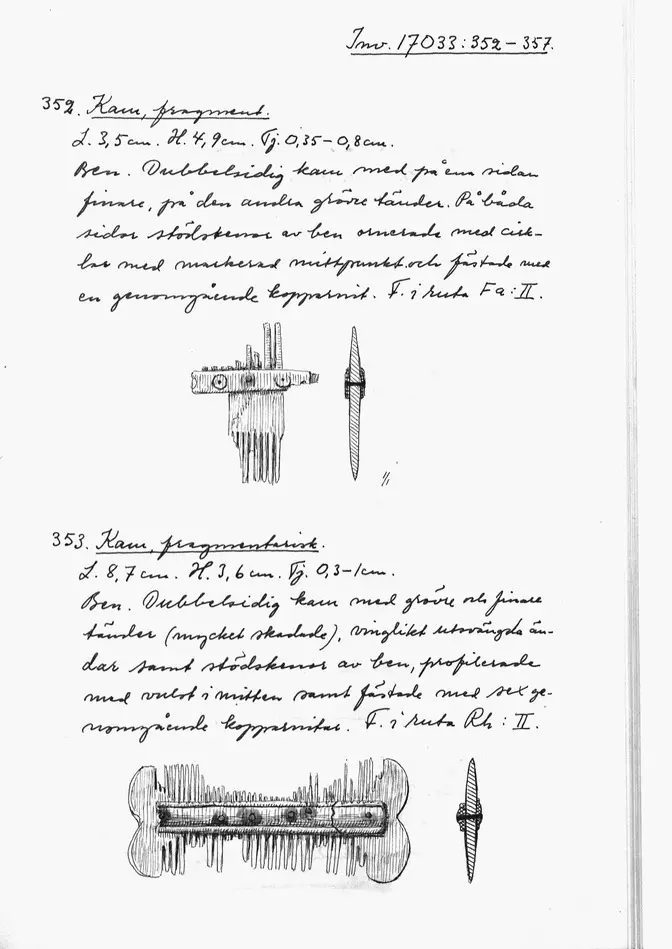 Inv. 17033:352-357.
352. Kam, fragment.
L. 3,5 cm. H. 4,9 cm. Tj. 0,35-0,8 cm.
Ben. Dubbelsidig kam med på ena sidan
finare, på den andra grövre tänder. På båda
sidor stödskenor av ben ornerade med cirk-
lar med markerad mittpunkt och fästade med
en genomgående kopparnit. F. i ruta Fa:II.
1/1
353. Kam, fragmentarisk.
L. 8,7 cm. H. 3,6 cm. Tj. 0,3-1 cm.
Ben. Dubbelsidig kam med grövre och finare
tänder (mycket skadade), vinglikt utsvängda än-
dar samt stödskenor av ben, profilerade
med vulst i mitten samt fästade med sex ge-
nomgående kopparnitar. F. i ruta Rh:II.